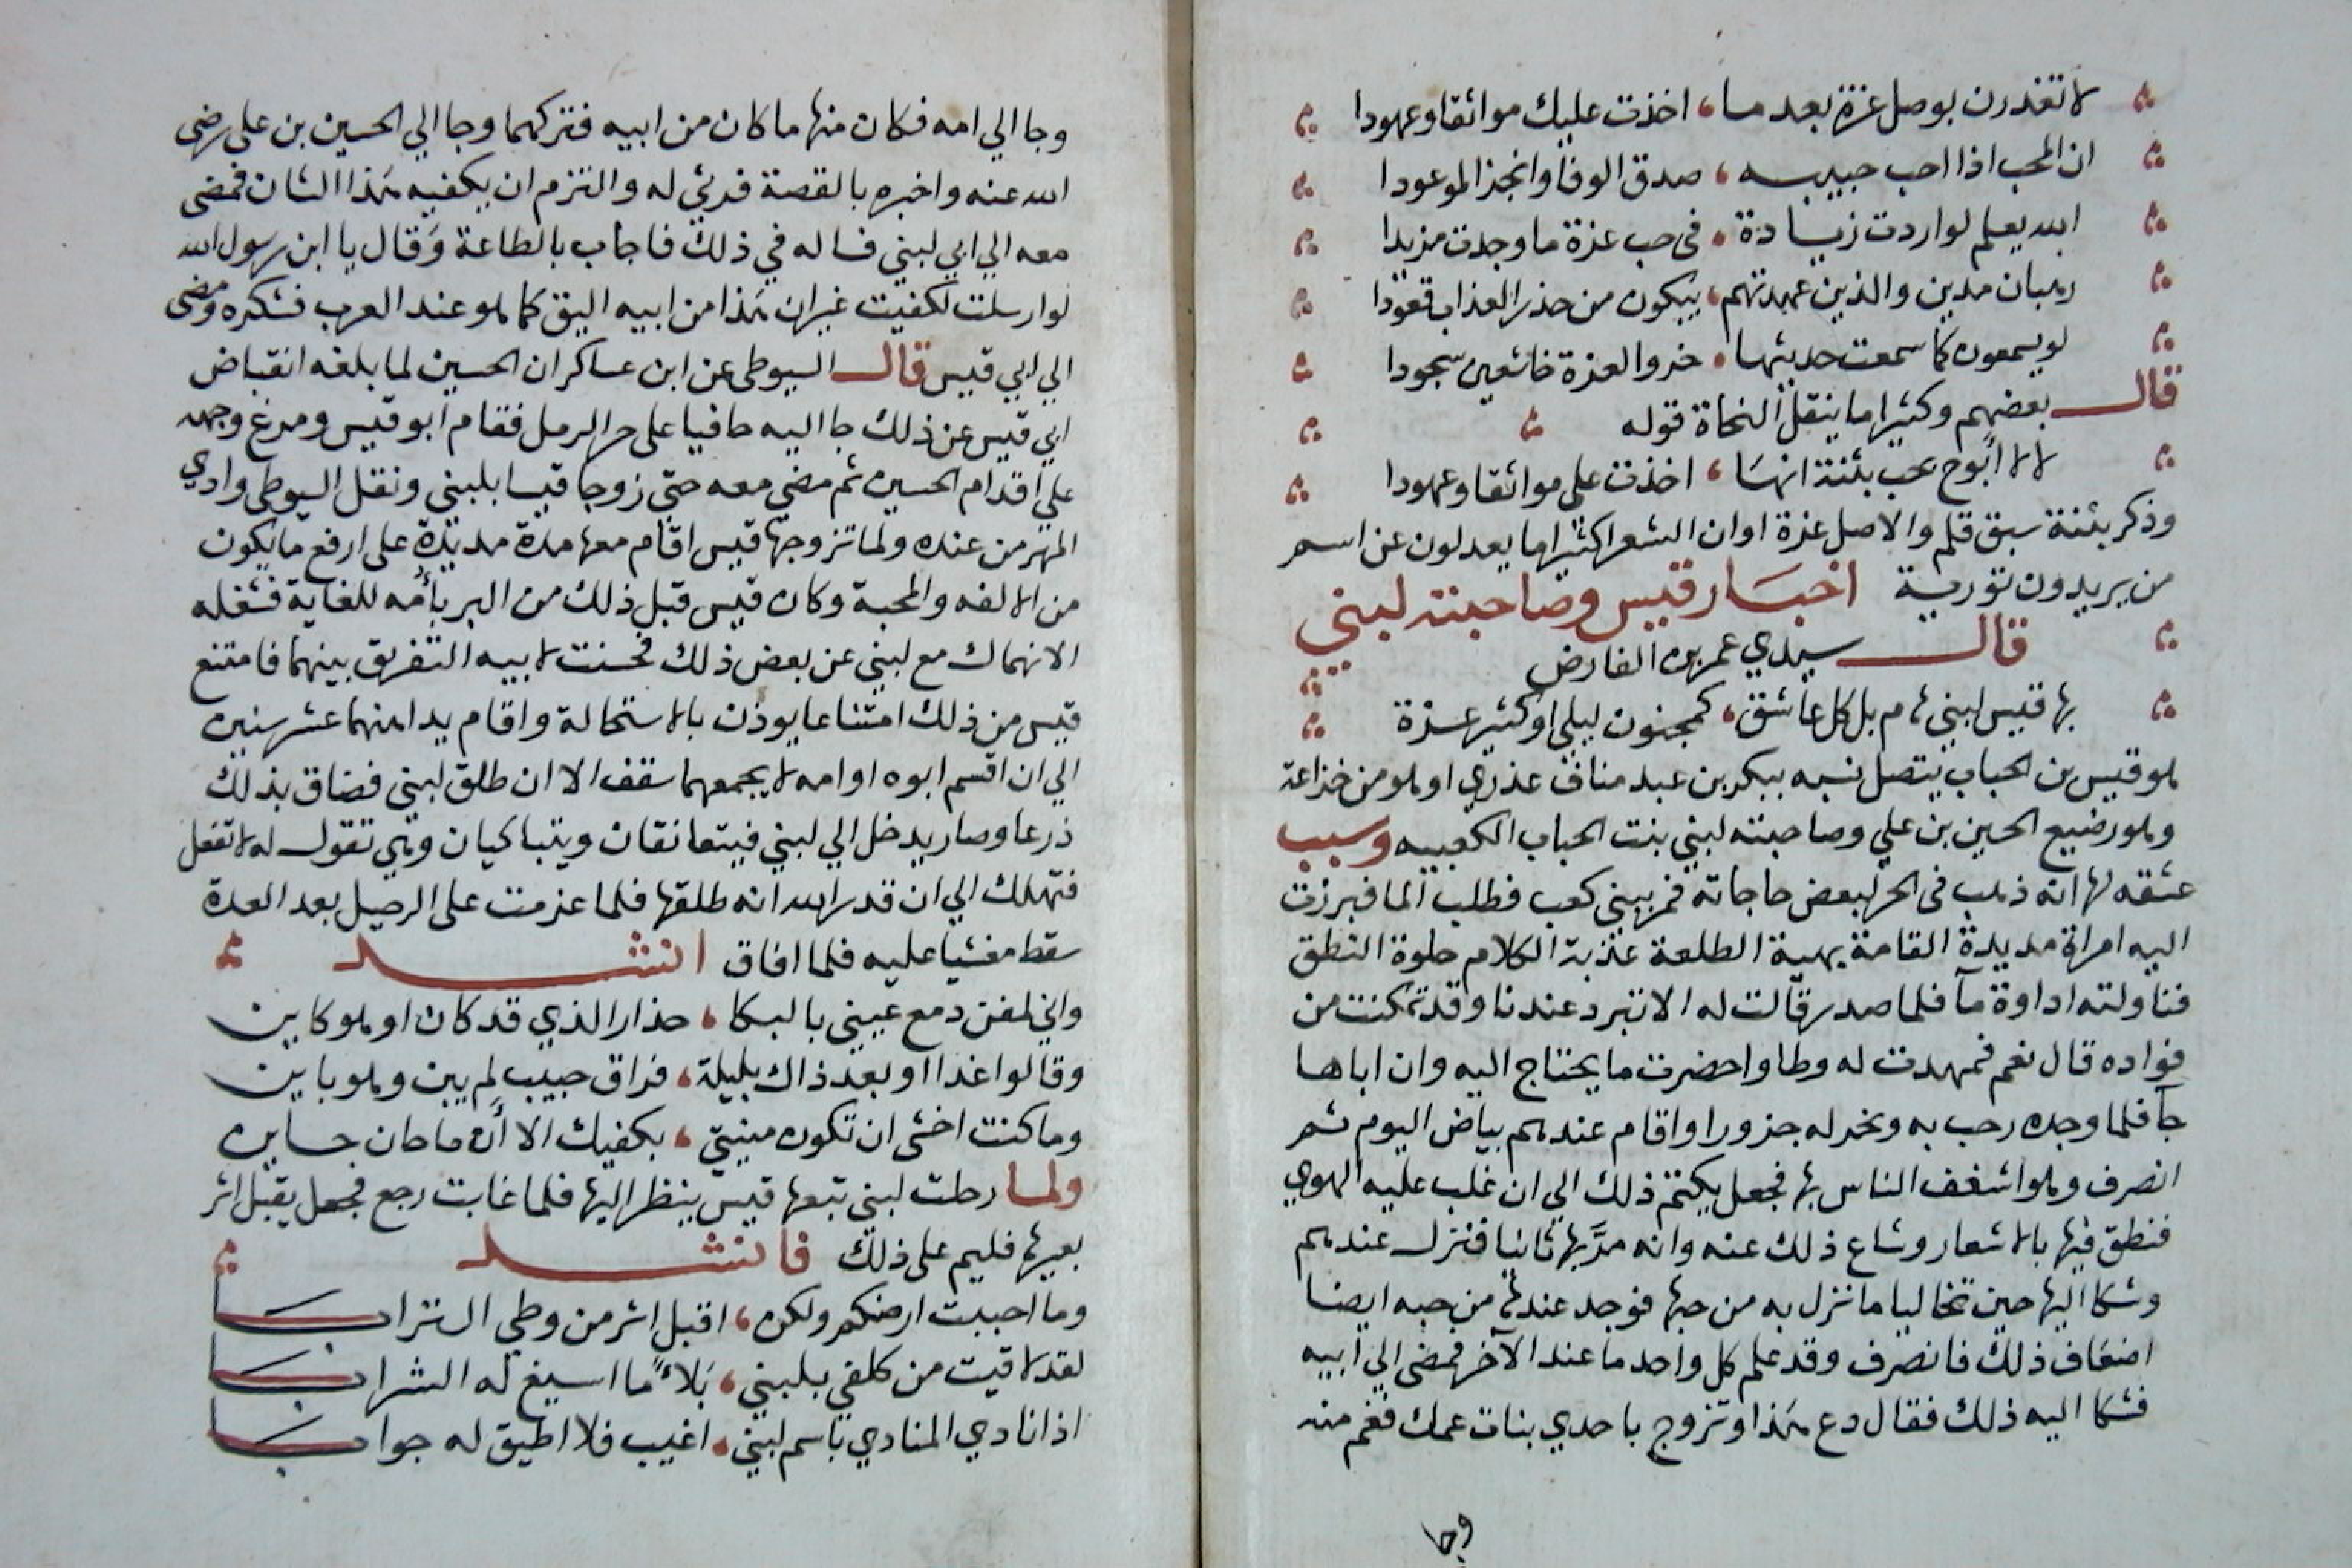 لا تغدرن بوصل عزة بعد ما ، اخذت عليك مواثقا وعهودا
ان المحب اذا احب حبيبه ، صدق الوفا وانجز الموعودا
الله يعلم لو اردت زيادة ، في حب عزة ما وجدت مزيدا
رهبان مدين والذين عهدتهم ، يبكون من حذر العذاب قعودا
لو يسمعون كما سمعت حديثها ، خروا لعزة خاشعين سجودا
قال بعضهم وكثيرا ما ينقل النحاة قوله
لا لا أبوح بحب بثنة انها ، اخذت علي مواثقا وعهودا
وذكر بثنة سبق قلم والاصل عزة او ان الشعرا كثيرا ما يعدلون عن اسم
من يريدون تورية اخبار قيس وصاحبته لبني
قال سيدي عمر بن الفارض
بها قيس لبني هام بل كل عاشق ، كمجنون ليلي او كثير عزة
هو قيس بن الحباب يتصل نسبه ببكر بن عبد مناف عذري او هو من خزاعة
وهو رضيع الحسين بن علي وصاحبته لبني بنت الحباب الكعبيه وسبب
عشقه لها انه ذهب في الحر لبعض حاجاته فمر ببني كعب فطلب الما فبرزت
اليه امراة مديدة القامة بهية الطلعة عذبة الكلام حلوة النطق
فناولته اداوة مآ فلما صدر قالت له الا تبرد عندنا وقد تمكنت من
فواده قال نعم فمهدت له وطا واحضرت ما يحتاج اليه وان اباها
جآ فلما وجده رحب به ونحر له جزورا واقام عندهم بياض اليوم ثم
انصرف وهو اشغف الناس بها فجعل يكتم ذلك الي ان غلب عليه الهوي
فنطق فيها بالاشعار وشاع ذلك عنه وانه مر بها ثانيا فنزل عندهم
وشكا اليها حين تخاليا ما نزل به من حبها فوجد عندها من حبه ايضا
اضعاف ذلك فانصرف وقد علم كل واحد ما عند الآخر فمضي الي ابيه
فشكا اليه ذلك فقال دع هذا وتزوج باحدي بنات عمك فغم منه
وجا
وجا الي امه فكان منها ما كان من ابيه فتركهما وجا الي الحسين بن علي رضي
الله عنه واخبره بالقصة فرثي له والتزم ان يكفيه هذا الشان فمضي
معه الي ابي لبني فساله في ذلك فاجاب بالطاعة وقال يا ابن رسول الله
لو ارسلت لكفيت غير ان هذا من ابيه اليق كما هو عند العرب فشكره ومضي
الي ابي قيس قال السيوطي عن ابن عساكر ان الحسين لما بلغه انقباض
ابي قيس عن ذلك جا اليه حافيا علي حر الرمل فقام ابو قيس ومرغ وجهه
علي اقدام الحسين ثم مضي معه حتي زوجا قيسا بلبني ونقل السيوطي وادي
المهر من عنده ولما تزوجها قيس اقام معها مدة مديدة علي ارفع ما يكون
من الالفه والمحبة وكان قيس قبل ذلك من البر بأمه للغاية فشغله
الانهماك مع لبني عن بعض ذلك فحسنت لابيه التفريق بينهما فامتنع
قيس من ذلك امتناعا يوذن بالاستحالة واقام يدامنهما عشر سنين
الي ان اقسم ابوه او امه لا يجمعهما سقف الا ان طلق لبني فضاق بذلك
ذرعا وصار يدخل الي لبني فيتعانقان ويتباكيان وهي تقول له لا تفعل
فتهلك الي ان قدر الله انه طلقها فلما عزمت علي الرحيل بعد العدة
سقط مغشيا عليه فلما افاق انشد
واني لمفن دمع عيني بالبكا ، حذار الذي قد كان او هو كاين
وقالوا غدا او بعد ذاك بليلة ، فراق حبيب لم يبن وهو باين
وما كنت اخشي ان تكون منيتي ، بكفيك الا أن ما حان حاين
ولما رحلت لبني تبعها قيس ينظر اليها فلما غابت رجع فجعل يقبل اثر
بعيرها فليم علي ذلك فانشد
وما احببت ارضكم ولكن ، اقبل اثر من وطي الترابا
لقد لاقيت من كلفي بلبني ، بلاءً ما اسيغ له الشرابا
اذا نادي المنادي باسم لبني ، اغيب فلا اطيق له جوابا